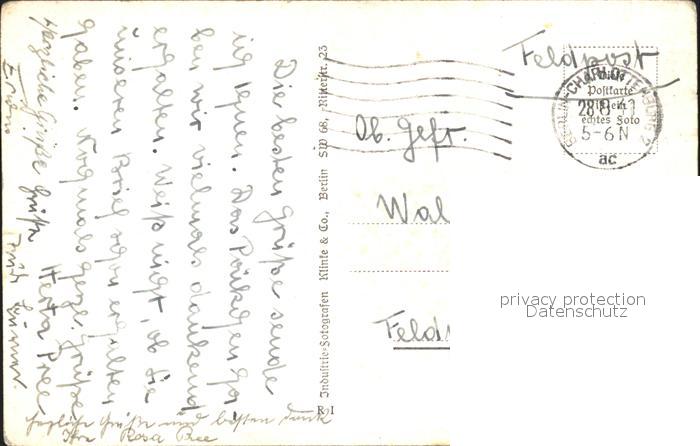 Feldpost
BERLIN-CHARLOTTENBURG 2
28.8.41
5-6 N
ac
Diese
Postkarte
ist ein
echtes Foto
Ob. Gefr.
Wal
Feld
privacy protection
Datenschutz
Industrie-Fotografen Klinke & Co., Berlin SW 68, Ritterstr. 23
R I
Die besten Grüße sende
ich Ihnen. Das Päckchen ha-
ben wir vielmals dankend
erhalten. Weiß nicht, ob Sie
unseren Brief schon erhalten
haben. Nochmals herzl. Grüße
Herta Pree
Herzliche Grüße
Erwin
herzliche Grüße und besten Dank
Ihre Rosa Pree